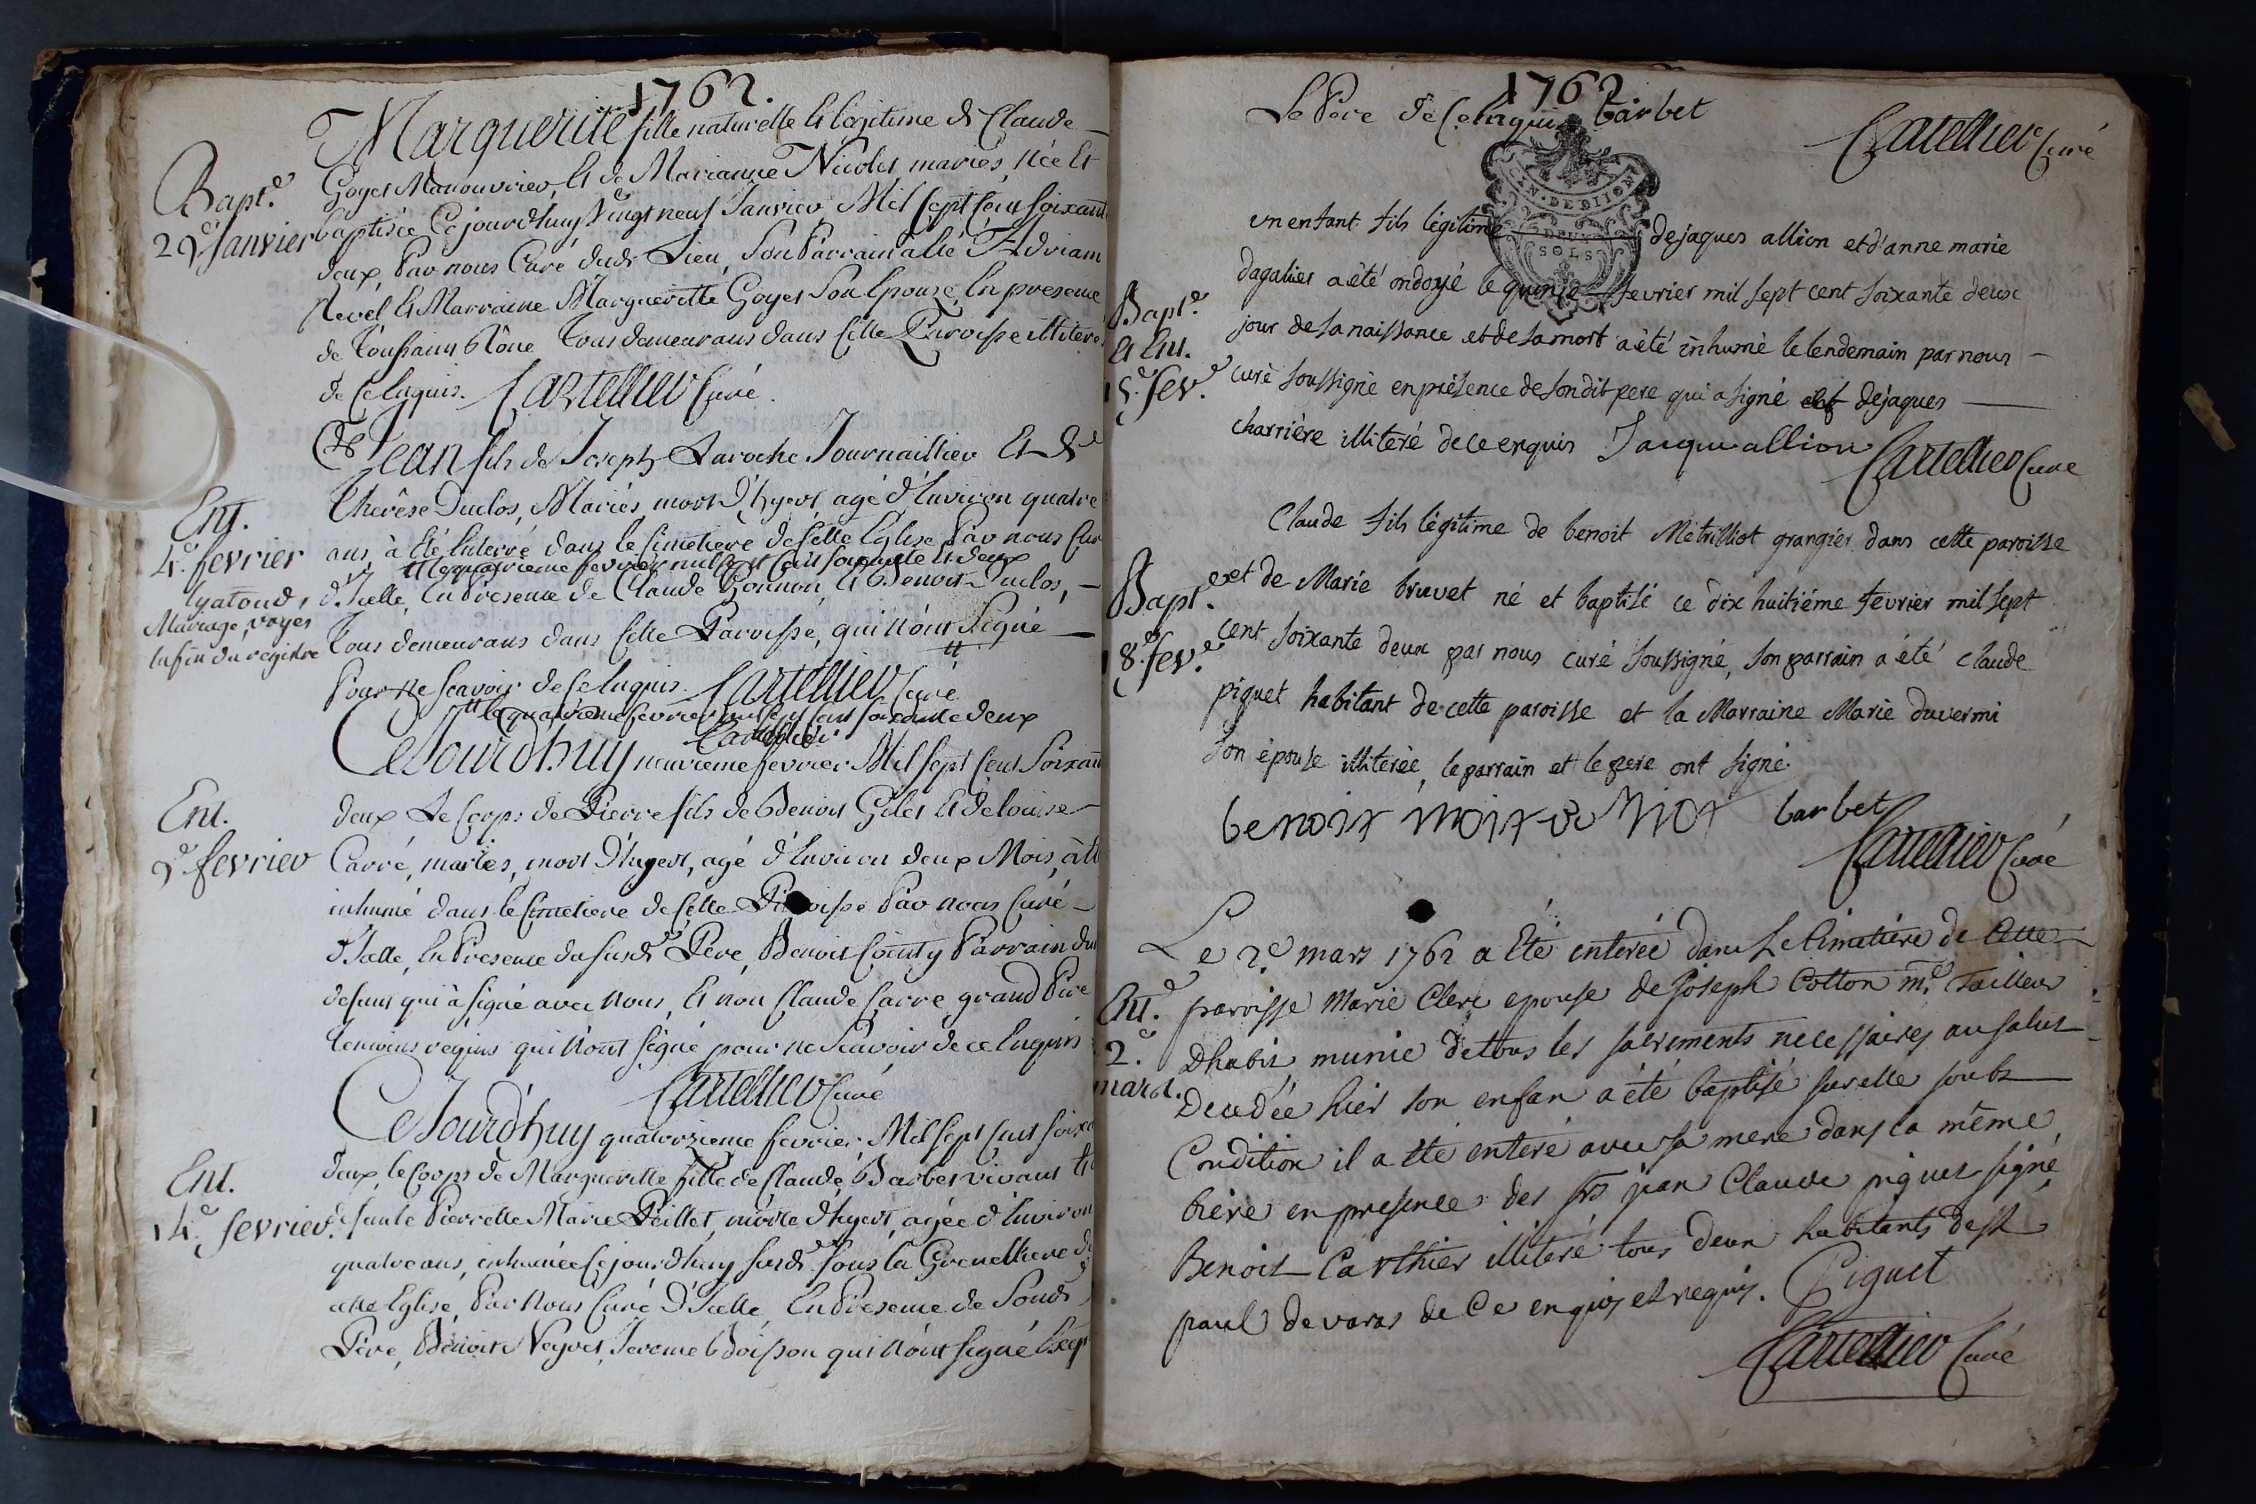 1762.
Marguerite fille naturelle et légitime de Claude
Bapt.e
29e Janvier
Goyet Manouvrier, et de Marianne Nicolet, mariés, née et
baptisée Ce jourdhuy Vingt neuf Janvier Mil sept Cent soixante
deux, par nous Curé dudt Lieu, Son Parrain a été Adriam
Revel et Marraine Margueritte Goyet Son Epouse, En presence
de Toussaint Rône tous demeurans dans cette Paroisse illiteré
de Ce Enquis. Cartellier Curé.
Jean fils de Joseph Laroche Journaillier Et de
Ent.
4e. fevrier
Therêse Duclos, Mariés, mort d'hyert, agé d'Environ quatre
ans, à été Enterré dans le Cimetiere de cette Eglise Par nous Curé
le quatrieme fevrier mil sept Cent soixante et deux
d'Icelle, En Presence de Claude Gonnon, et Benoit Duclos,
Mariage, voyes
la fin du registre
Tous demeurans dans cette Paroisse, qui n'ont Signé
Pour ne Scavoir de Ce Enquis. Cartellier Curé
le quatrieme fevrier mil sept Cent soixante deux
Cartellier
Ce Jourdhuy neuvieme fevrier Mil sept Cent Soixante
Ent.
9e fevrier
deux Le Corps de Pierre fils de Benoit Gilet et de Louise
Carré, mariés, mort D'hyert, agé d'Environ deux Mois, à été
inhumé dans le Cimetiere de Cette Paroisse Par nous Curé
d'Icelle, En Presence du susdt Père, Benoit Parrain du
defunt qui à signé avec Nous, et non Claude Carre, grand Pere
temoins requis qui n'ont signé pour ne Scavoir de ce Enquis
Cartellier Curé
Ce Jourd'huy quatorzieme fevrier Mil sept Cent soixante
Ent.
14e. fevrier.
deux, le Corps de Marguerite fille de Claude Barbet vivant et
defunte Pierrette Marie Peillet, morte d'hyert, agée d'Environ
quatre ans, inhumée Ce jourdhuy susdt Sous la
cette Eglise, Par Nous Curé D'Icelle, En Presence de Soudt
Père, Benoit Neyret, Jerome Boisson qui n'ont signé Except
1762
Le Pere de Ce Enquis barbet
Cartellier Curé
un enfant fils légitime de jaques allion et d'anne marie
Bapt.e
et Ent.
15e. fev.e
dagalier a été ondoyé le quinze fevrier mil sept cent soixante deux
jour de sa naissance et de sa mort a été inhumé le lendemain par nous
curé soussigné en présence de sondit pere qui a signé et de jaques
charriére illiteré de ce enquis Jaque allion Cartellier Curé
Claude fils légitime de benoit Metrilliot grangier dans cette paroisse
Bapt.e
18e. fev.e
et de Marie bruvet né et baptisé ce dix huitiéme fevrier mil sept
cent soixante deux par nous curé soussigné, son parrain a été claude
piquet habitant de cette paroisse et la Marraine Marie duvermi
son épouse illiterée, le parrain et le pere ont signé.
benoit barbet
Cartellier Curé
Le 2e mars 1762 a Eté enterée dans Le Cimetiére de Cette
Ent.e
2.e
mars.
paroisse Marie Clerc epouse de joseph Cotton me. Tailleur
Dhabit, munie de tous les sacrements necessaires au salut
Decedée hier son enfan a été baptisé sur elle soubs
Condition il a eté enteré avec sa mere dans la même
biere en presence des srs jean Claude piquet signé,
Benoit Carthier illiteré tous deux habitants de st
paul de varas de Ce enquis et requis. Piguet
Cartellier Curé